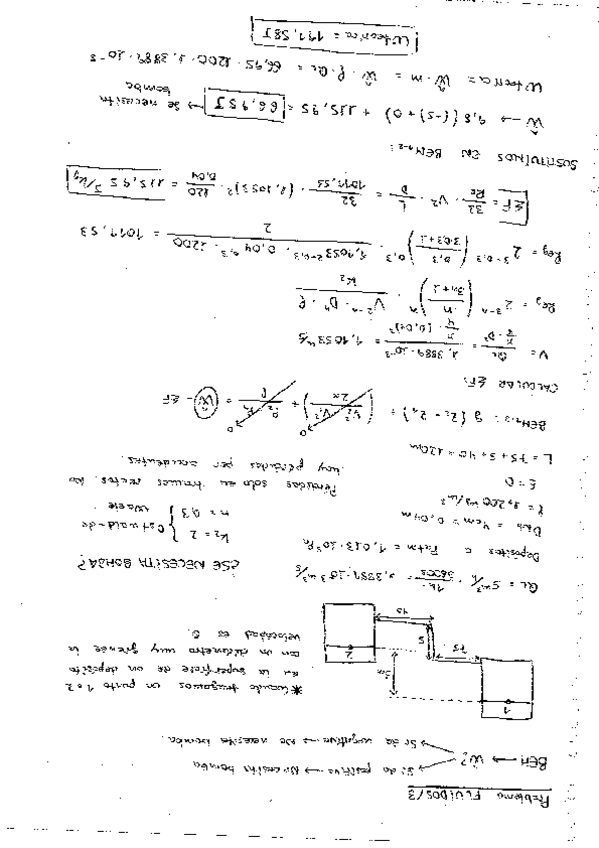 Problema FLUIDOS/3
BEM → Ŵ?
→ Si da positivo → Necesita bomba
→ Si da negativo → No necesita bomba.
*Cuando tengamos un punto 1 o 2
en la superficie de un depósito
con un diámetro muy grande la
velocidad es 0.
1
2
5m
75
5
QL = 5 m³/h · 1h/3600s = 1,3889·10⁻³ m³/s
¿SE NECESITA BOMBA?
Depósitos a Patm = 1,013·10⁵ Pa
Dint = 4cm = 0,04m
ρ = 1.200 kg/m³
ε = 0
L = 75 + 5 + 40 = 120m
K2 = 2
n = 0,3
Ostwald-de
Waele
Pérdidas solo en tramos rectos. No
hay pérdidas por accidentes.
BEM1-2: g (z2 - z1) + (V2² - V1²/2α) + P2 - P1/ρ = Ŵ - ΣF
CALCULAR ΣF:
V = QL/(π/4 · D²) = 1,3889·10⁻³/(π/4 · (0,04)²) = 1,1053 m/s
Reg = 2³⁻ⁿ (n/3n+1)ⁿ · V²⁻ⁿ · Dⁿ · ρ/K2
Reg = 2³⁻⁰'³ (0,3/3·0,3+1)⁰'³ · 1,1053²⁻⁰'³ · 0,04⁰'³ · 1200/2 = 1097,53
ΣF = 32/Re · V² · L/D = 32/1097,53 · (1,1053)² · 120/0,04 = 115,95 J/kg
SUSTITUIMOS EN BEM1-2:
Ŵ → 9,8 ((-5)+0) + 115,95 = 66,95J → Se necesita
bomba
Wteorica = Ŵ · m = Ŵ · ρ · QL = 66,95 · 1200 · 1,3889·10⁻³
Wteorica = 111,58J